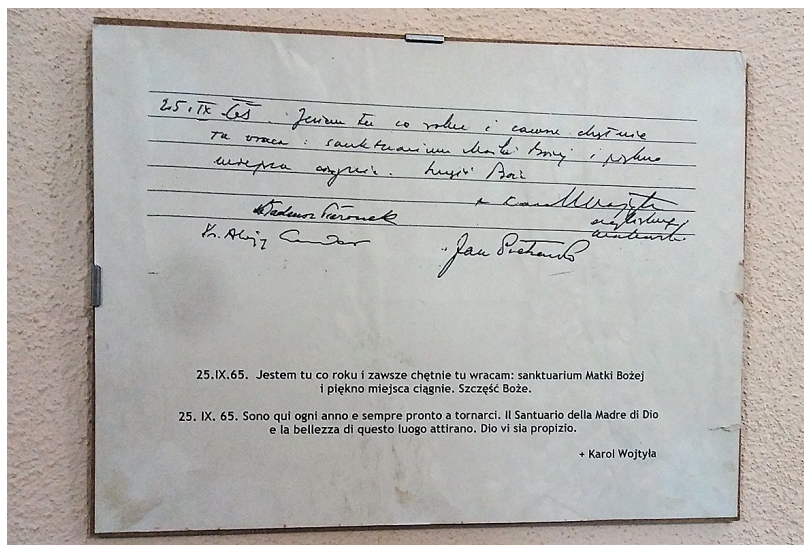 25.IX 65. Jestem tu co roku i zawsze chętnie
tu wracam: sanktuarium Matki Bożej i piękno
miejsca ciągnie. Szczęść Boże
+ Karol Wojtyła
arcybiskup
krakowski
Tadeusz Pieronek
Ks. Alojzy
Jan Pietraszko
25.IX.65. Jestem tu co roku i zawsze chętnie tu wracam: sanktuarium Matki Bożej
i piękno miejsca ciągnie. Szczęść Boże.
25. IX. 65. Sono qui ogni anno e sempre pronto a tornarci. Il Santuario della Madre di Dio
e la bellezza di questo luogo attirano. Dio vi sia propizio.
+ Karol Wojtyła